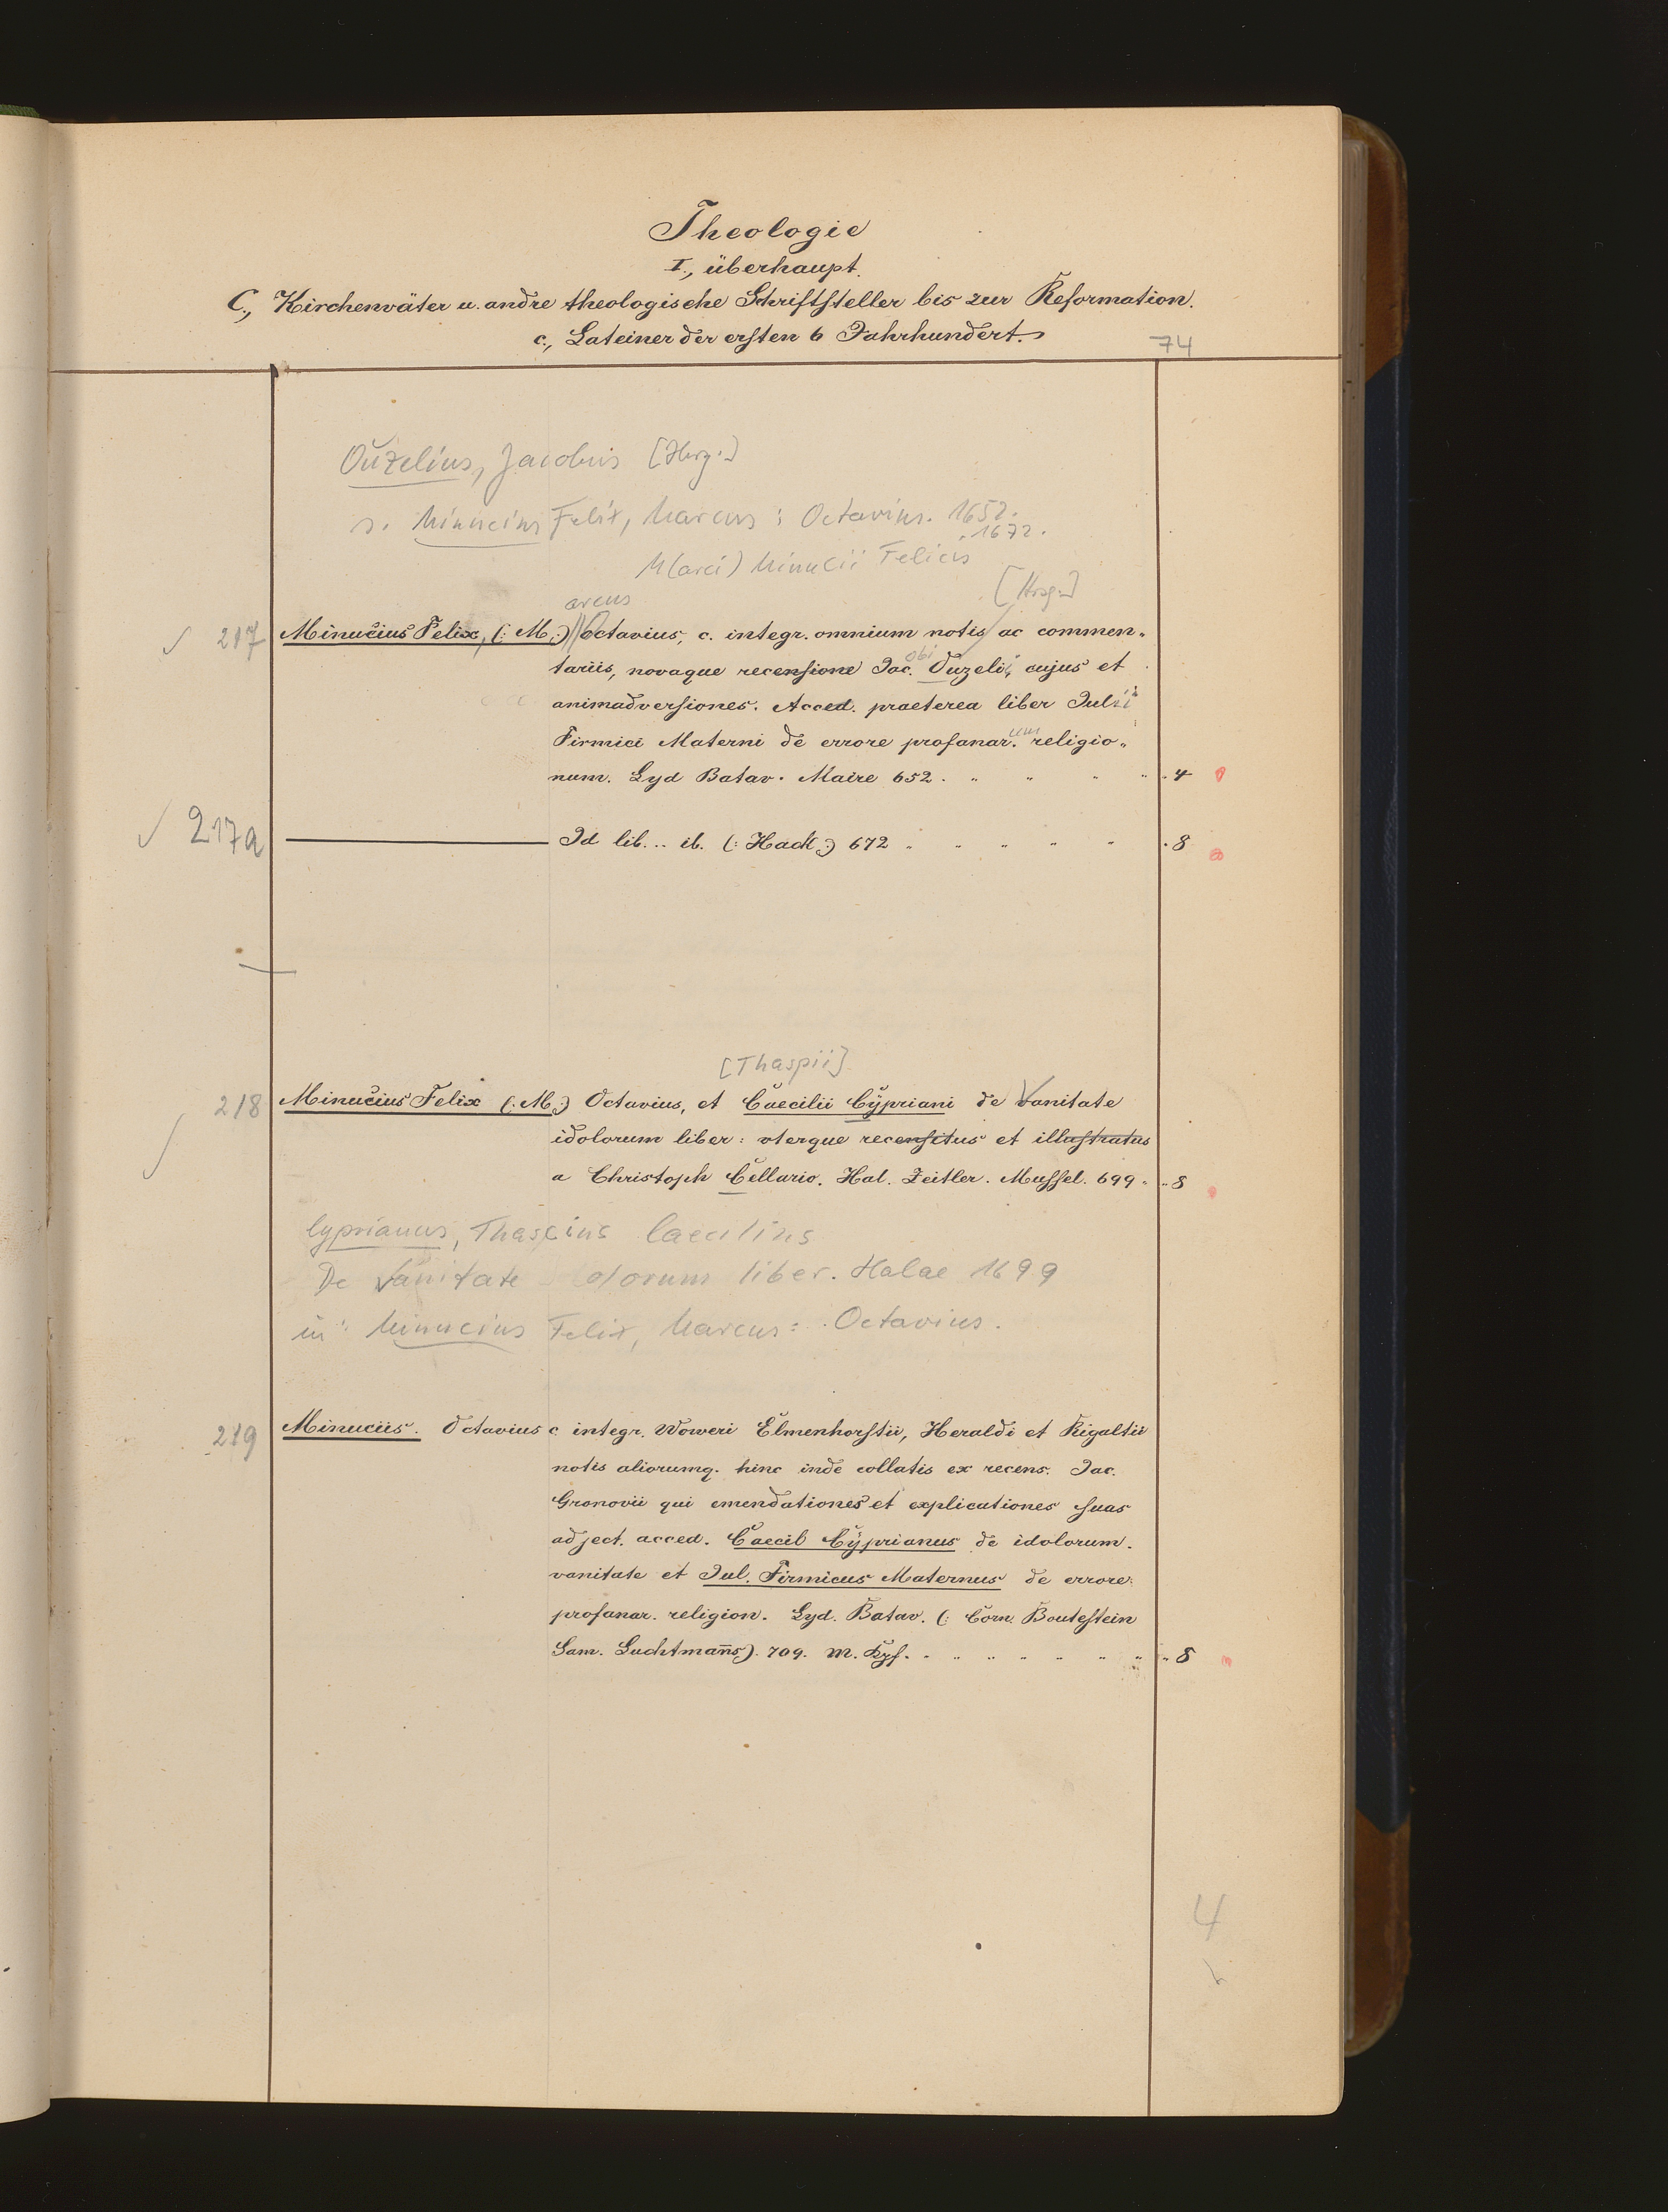 Theologie
I., überhaupt.
C., Kirchenväter u. andre theologische Schriftsteller bis zur Reformation.
c., Lateiner der ersten 6 Jahrhundert.
74
Ouzelius, Jacobus [Hrsg.]
s. Minucius Felix, Marcus: Octavius. 1652.
1672.
M(arci) Minucii Felicis
arcus [Hrsg.]
217 Minucius Felix, (: M :) Octavius, c. integr. omnium notis ac commen„
obi
tariis, novaque recensione Jac. Ouzelii, cujus et
animadversiones. Acced. praeterea liber Julii
um
Firmici Materni de errore profanar. religio„
num. Lyd Batav. Maire 652. 4
217a Id lib... ib. (: Hack :) 672 8
[Thaspii]
218 Minucius Felix (: M :) Octavius, et Caecilii Cypriani de Vanitate
idolorum liber: vterque recensitus et illustratus
a Christoph Cellario. Hal. Zeitler. Mussel. 699. 8
Cyprianus, Thascius Caecilius
De Vanitate idolorum liber. Halae 1699
in: Minucius Felix, Marcus: Octavius.
219 Minuciis. Octavius c. integr. Woweri Elmenhorstii, Heraldi et Rigaltii
notis aliorumq. hinc inde collatis ex recens. Jac.
Gronovii qui emendationes et explicationes suas
adject. acced. Caecil Cyprianus de idolorum.
vanitate et Jul. Firmicus Maternus de errore
profanar. religion. Lyd. Batav. (: Corn. Boutestein
Sam. Luchtmañs). 709. m. Kpf. 8
4